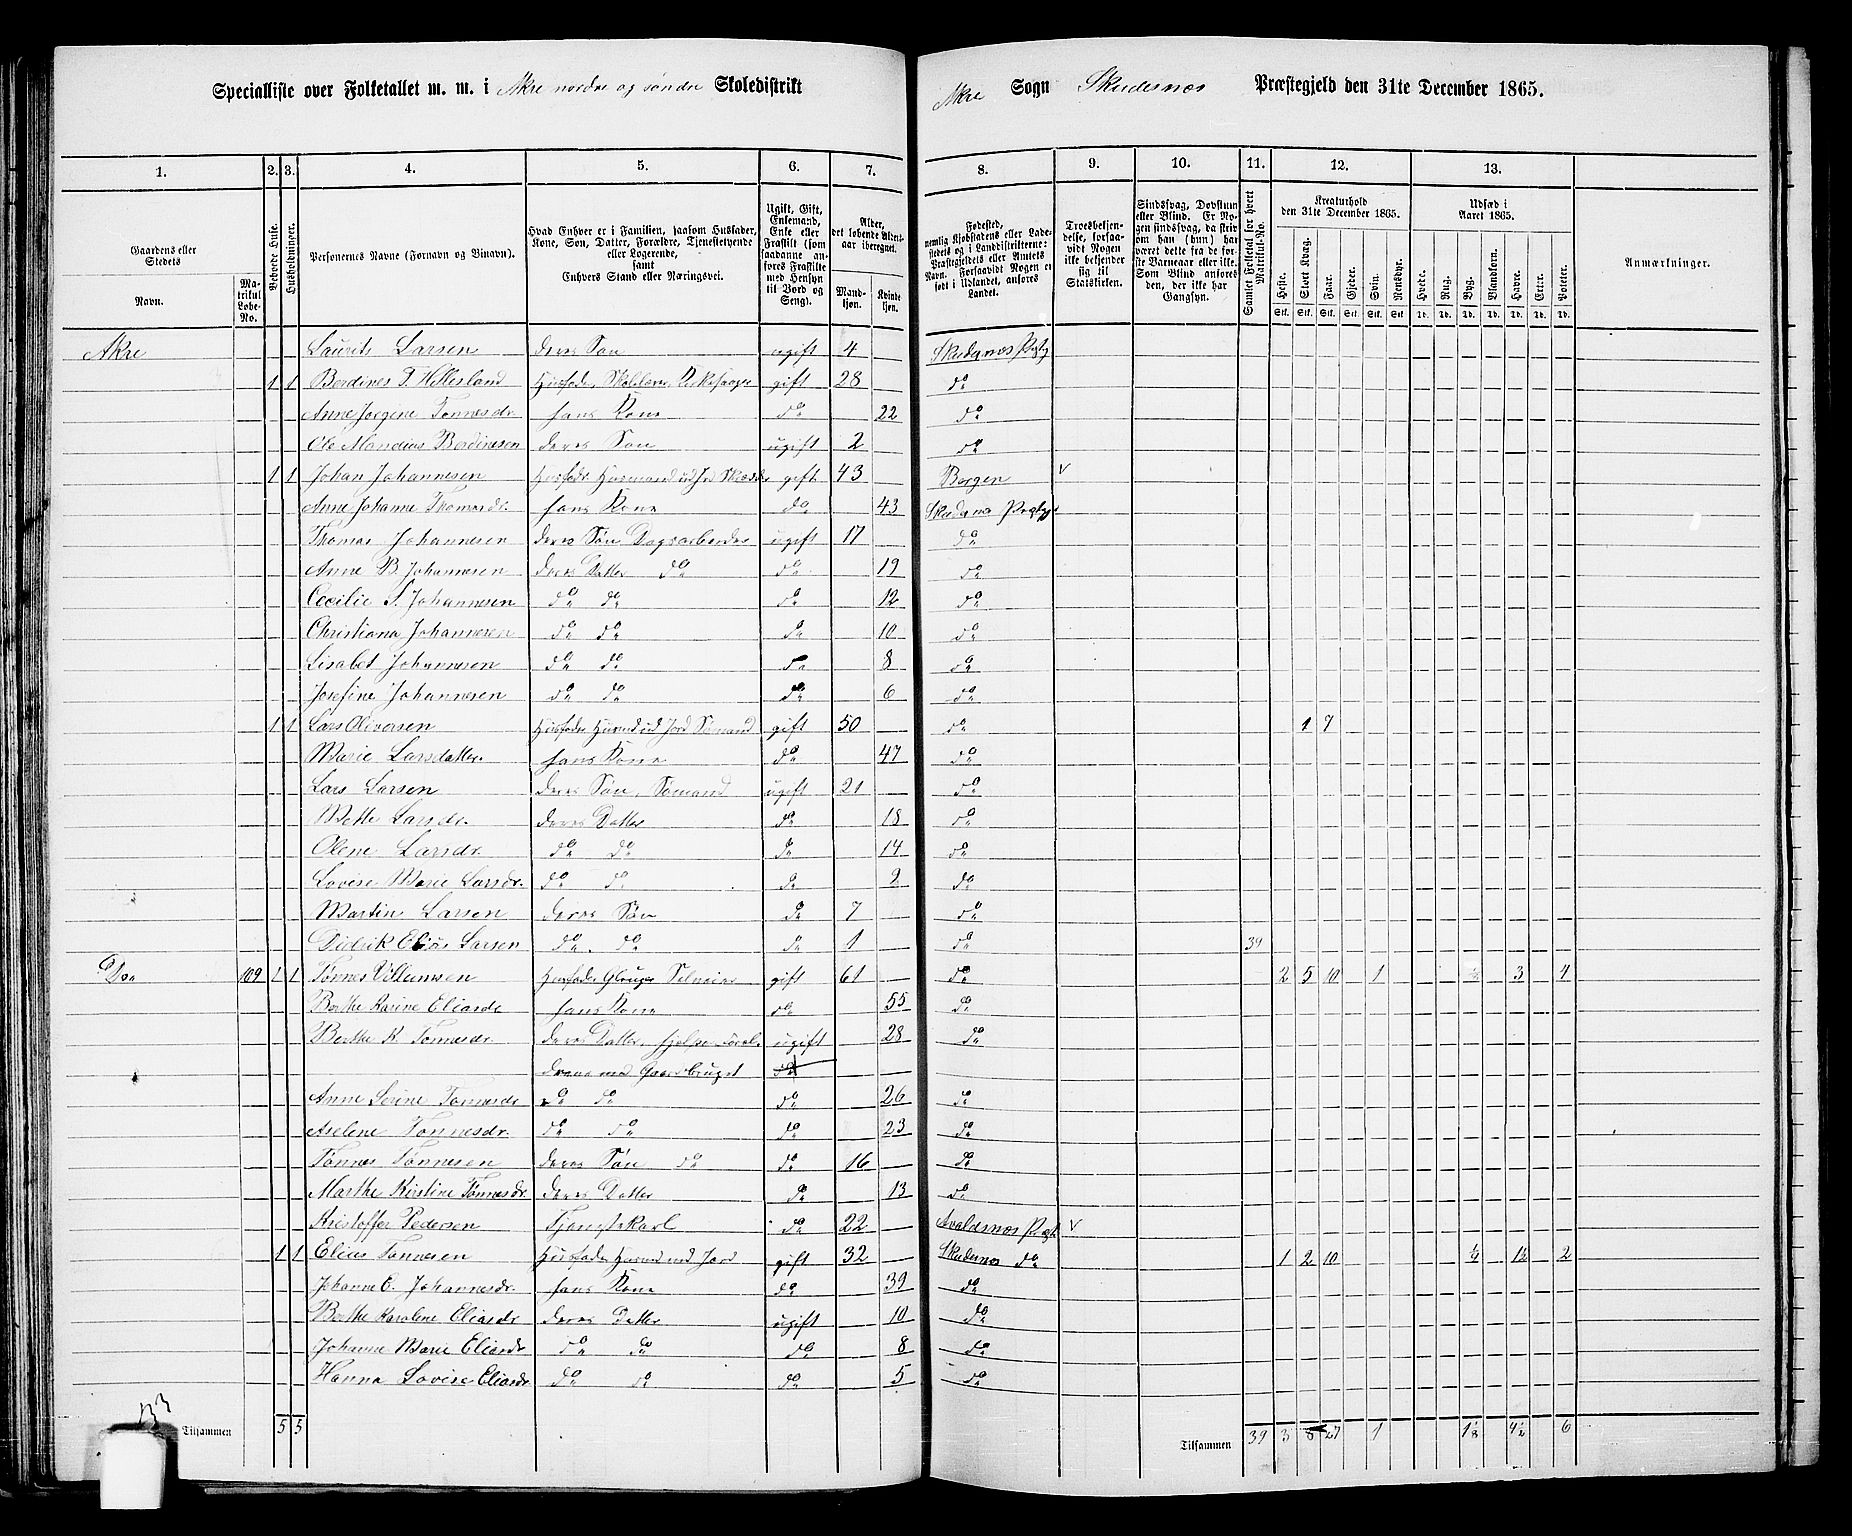 Specialliste over Folketallet m. m. i Akre nordre og søndre Skoledistrikt
Akre Sogn Skudesnæs Præstegjeld den 31te December 1865.
1. 2. 3. 4. 5. 6. 7. 8. 9. 10. 11. 12. 13.
Gaardens eller Stedets
Navn.
Matrikul Løbe-No.
Beboede Huse.
Husholdninger.
Personernes Navne (Fornavn og Binavn).
Hvad Enhver er i Familien, saasom Husfader, Kone, Søn, Datter, Forældre, Tjenestetyende eller Logerende,
samt
Enhvers Stand eller Næringsvei.
Ugift, Gift, Enkemand, Enke eller Fraskilt (som saadanne anføres Fraskilte med Hensyn til Bord og Seng).
Alder, det løbende Aldersaar iberegnet.
Mandkjøn.
Kvindekjøn.
Fødested,
nemlig Kjøbstadens eller Ladestedets og i Landdistrikterne: Præstegjeldets eller Amtets Navn. Forsaavidt Nogen er født i Udlandet, anføres Landet.
Troesbekjendelse, forsaavidt Nogen ikke bekjender sig til Statskirken.
Sindssvag, Døvstum eller Blind. Er Nogen sindssvag, da skrives om han (hun) har været dette fra de første Barneaar eller ikke. Som Blind anføres den, der ikke har Gangsyn.
Samlet Folketal for hvert Matrikul-No.
Kreaturhold
den 31te December 1865.
Heste. Stort Kvæg. Faar. Gjeder. Svin. Rensdyr.
Stk. Stk. Stk. Stk. Stk. Stk.
Udsæd i
Aaret 1865.
Hvede. Rug. Byg. Blandkorn. Havre. Erter. Poteter.
Td. Td. Td. Td. Td. Td. Td.
Anmærkninger.
Akre Laurits Larsen deres Søn ugift 4 Skudesnæs Prstgj
1 1 Berdines T. Hellesland gift 28 do
Anne Jorgine Tønnesdr. hans Kone do 22 do
Ole Mandius Berdinesen deres Søn ugift 2 do
1 1 Johan Johannesen gift 43 Bergen v
Anne Johanne Thomasdr. hans Kone do 43 Skudesnæs
Thomas Johannesen deres Søn Dagsarbeider ugift 17 do
Anne B. Johannesen deres Datter do do 19 do
Cecilie S. Johannesen do do do 12 do
Christiana Johannesen do do do 10 do
Lisabet Johannesen do do do 8 do
Josefine Johannesen do do do 6 do
1 1 Lars Oliversen Husfader Husmd ud Jord Sømand gift 50 do 1 7
Marie Larsdatter. hans Kone do 47 do
Lars Larsen deres Søn, Sømand ugift 21 do
Mette Larsdr. deres Datter do 18 do
Olene Larsdr. do do do 14 do
Lovise Marie Larsdr. do do do 2 do
Martin Larsen deres Søn do 7 do
Didrik Elias Larsen do. do do 1 do 39
Do 109 1 1 Tønnes Villumsen gift 61 do 2 5 10 1 3 4
Berthe Karine Eliasdr hans Kone do 55 do
Berthe K. Tønnesdr. deres Datter, hjelper Foræl- ugift 28 do
drene med Gaardsbruget do
Anne Serine Tønnesdr do do do 26 do
Aselene Tønnesdr. do do do 23 do
Tønnes Tønnesen deres Søn do do 16 do
Marthe Kirstine Tønnesdr deres Datter do 13 do
Kristoffer Pedersen Tjenestekarl do 22 Avaldsnæs Prstgj v
1 1 Elias Tønnesen Husfader Husmd med Jord gift 32 Skudesnæs do 1 2 10 1½ 2
Johanne E. Johannesdr. hans Kone do 39 do
Berthe Karolene Eliasdr deres Datter ugift 10 do
Johanne Marie Eliasdr do do do 8 do
Hanna Lovise Eliasdr do do do 5 do
Tilsammen 5 5 Tilsammen 39 3 8 27 1 1⅛ 4½ 6
133